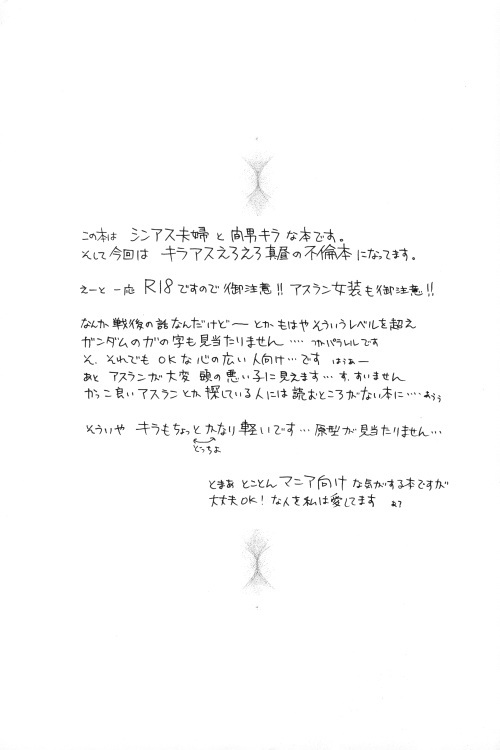 この本は シンアス夫婦 と 間男キラ な本です。
そして今回は キラアスえろえろ真昼の不倫本 になってます。
えーと 一応 R18ですので御注意!! アスラン女装も御注意!!
なんか 戦後の話なんだけどー とか もはや そういうレベルを超え
ガンダムのガの字も見当たりません‥‥ つかパラレルです
そ、それでも OKな心の広い人向け…です はうあー
あと アスランが 大変 頭の悪い子に見えます… す、すいません
かっこ良いアスランとか探している人には読むところがない本に‥‥ おうぅ
そういや キラもちょっとかなり軽いです… 原型が見当たりません…
どっちよ
とまあ とことん マニア向け な気がする本ですが
大丈夫OK! な人を私は愛してます